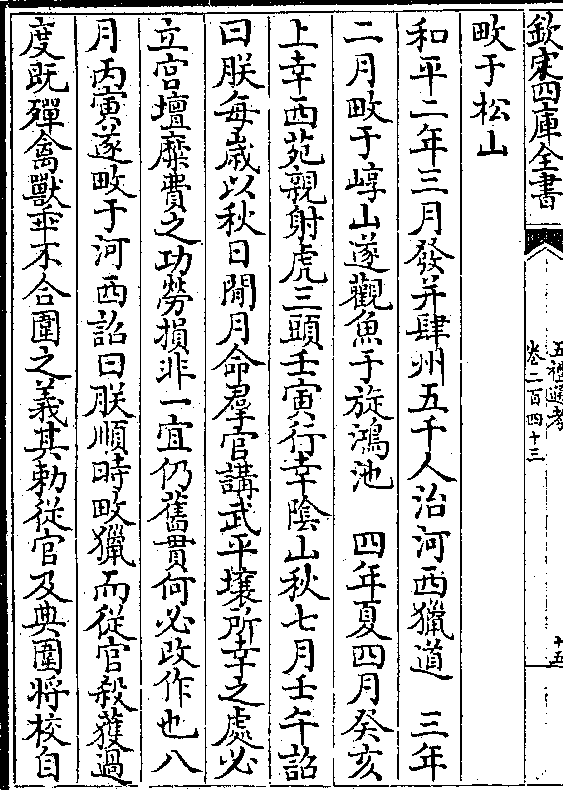 欽定四庫全書
五禮通考
卷二百四十三
十五
畋于松山
和平二年三月發并肆州五千人治河西獵道　三年
二月畋于崞山遂觀魚于旋鴻池　四年夏四月癸亥
上幸西苑親射虎三頭壬寅行幸陰山秋七月壬午詔
曰朕每歲以秋日閒月命羣官講武平壤所幸之處必
立宮壇糜費之功勞損非一宜仍舊貫何必改作也八
月丙寅遂畋于河西詔曰朕順時畋獵而從官殺獲過
度既殫禽獸乖不合圍之義其勅從官及典圍將校自